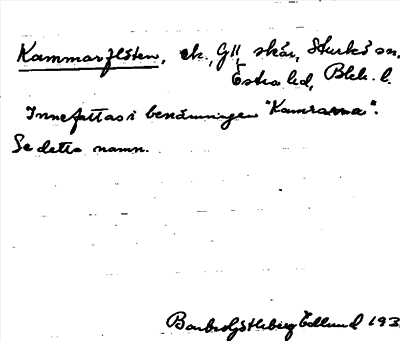 Kammarflöten, ek., G11 skär, Sturkö sn,
Östra hd, Blek. l.
Innefattas i benämningen "Kamrarna".
Se detta namn.
Edlund 193